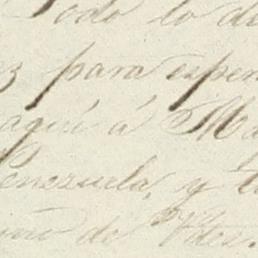 Todo lo di
para esper
aqui á Ma
Venezuela, y t
de Vdes.